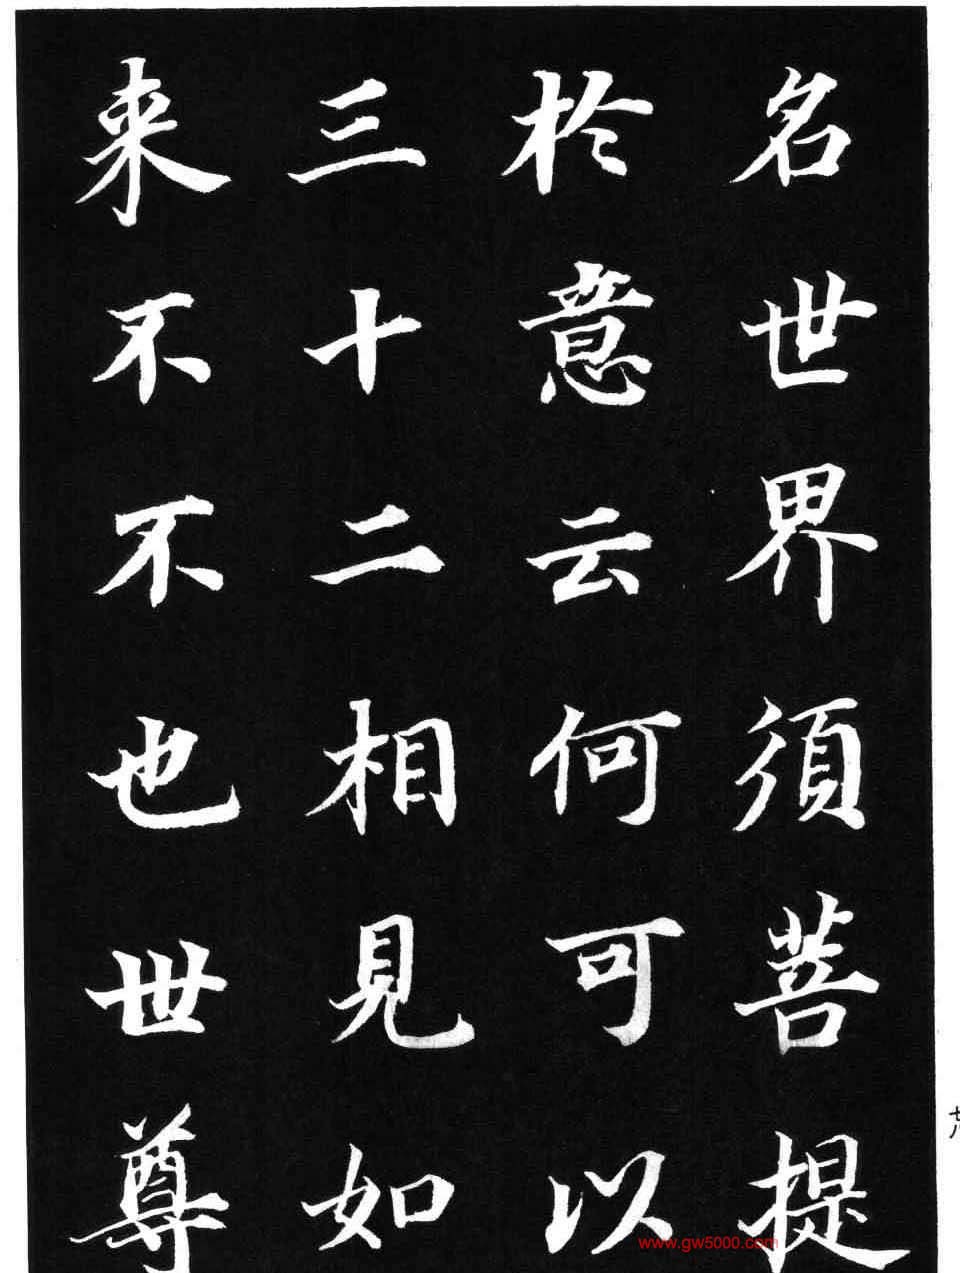 名世界須菩提
於意云何可以
三十二相見如
来不不也世尊
七八
www.gw5000.com